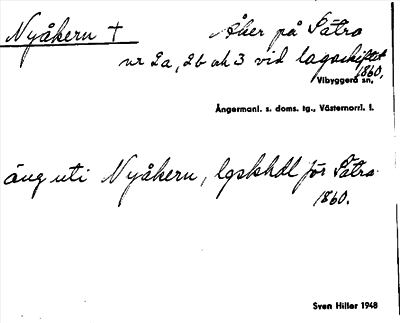 Nyåkern † Åker på Sätra
nr 2a, 2b ock 3 vid lagaskiftet
1860.
Vibyggerå sn.
Ångermanl. s. doms. tg., Västernorrl. l.
äng uti Nyåkern, lgskhdl för Sätra
1860.
Sven Hiller 1948